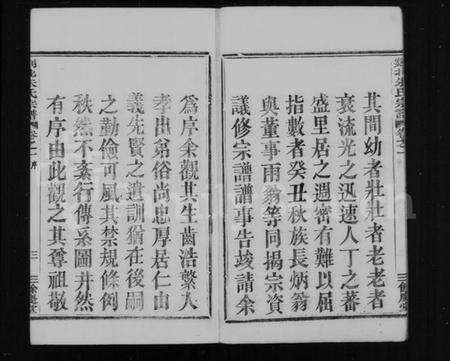 其間幼者壯壯者老老者
衰流光之迅速人丁之蕃
盛里居之週密有難以屈
指數者癸丑秋族長炳翁
與董事雨翁等同揭宗資
議修宗譜譜事告竣請余
為序余觀其生齒浩繁入
孝出弟俗尚忠厚居仁由
義先賢之遺訓猶在後嗣
之勤儉可風其禁規條例
秩然不紊行傳系圖井然
有序由此觀之其尊祖敬
氏宗譜 卷之一 序
三